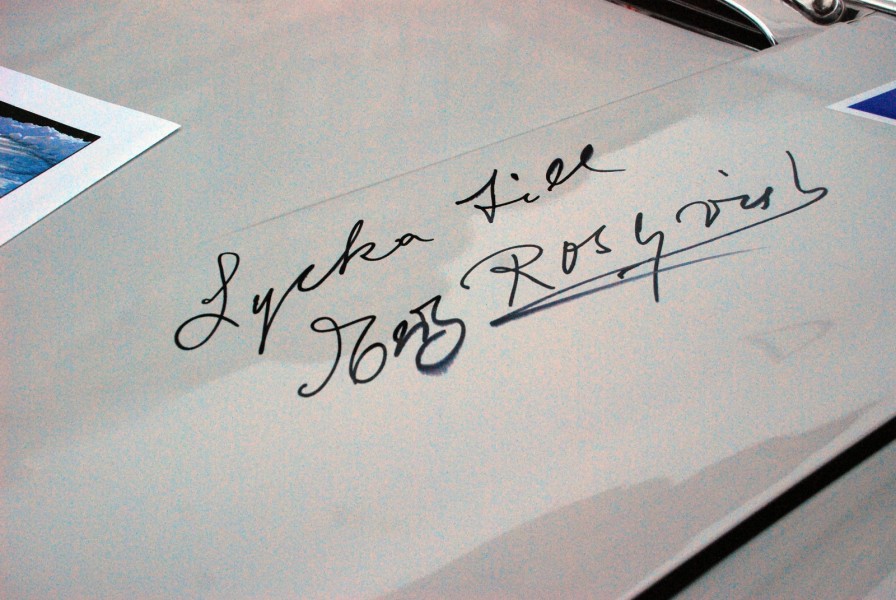 Lycka Till
Rosqvist